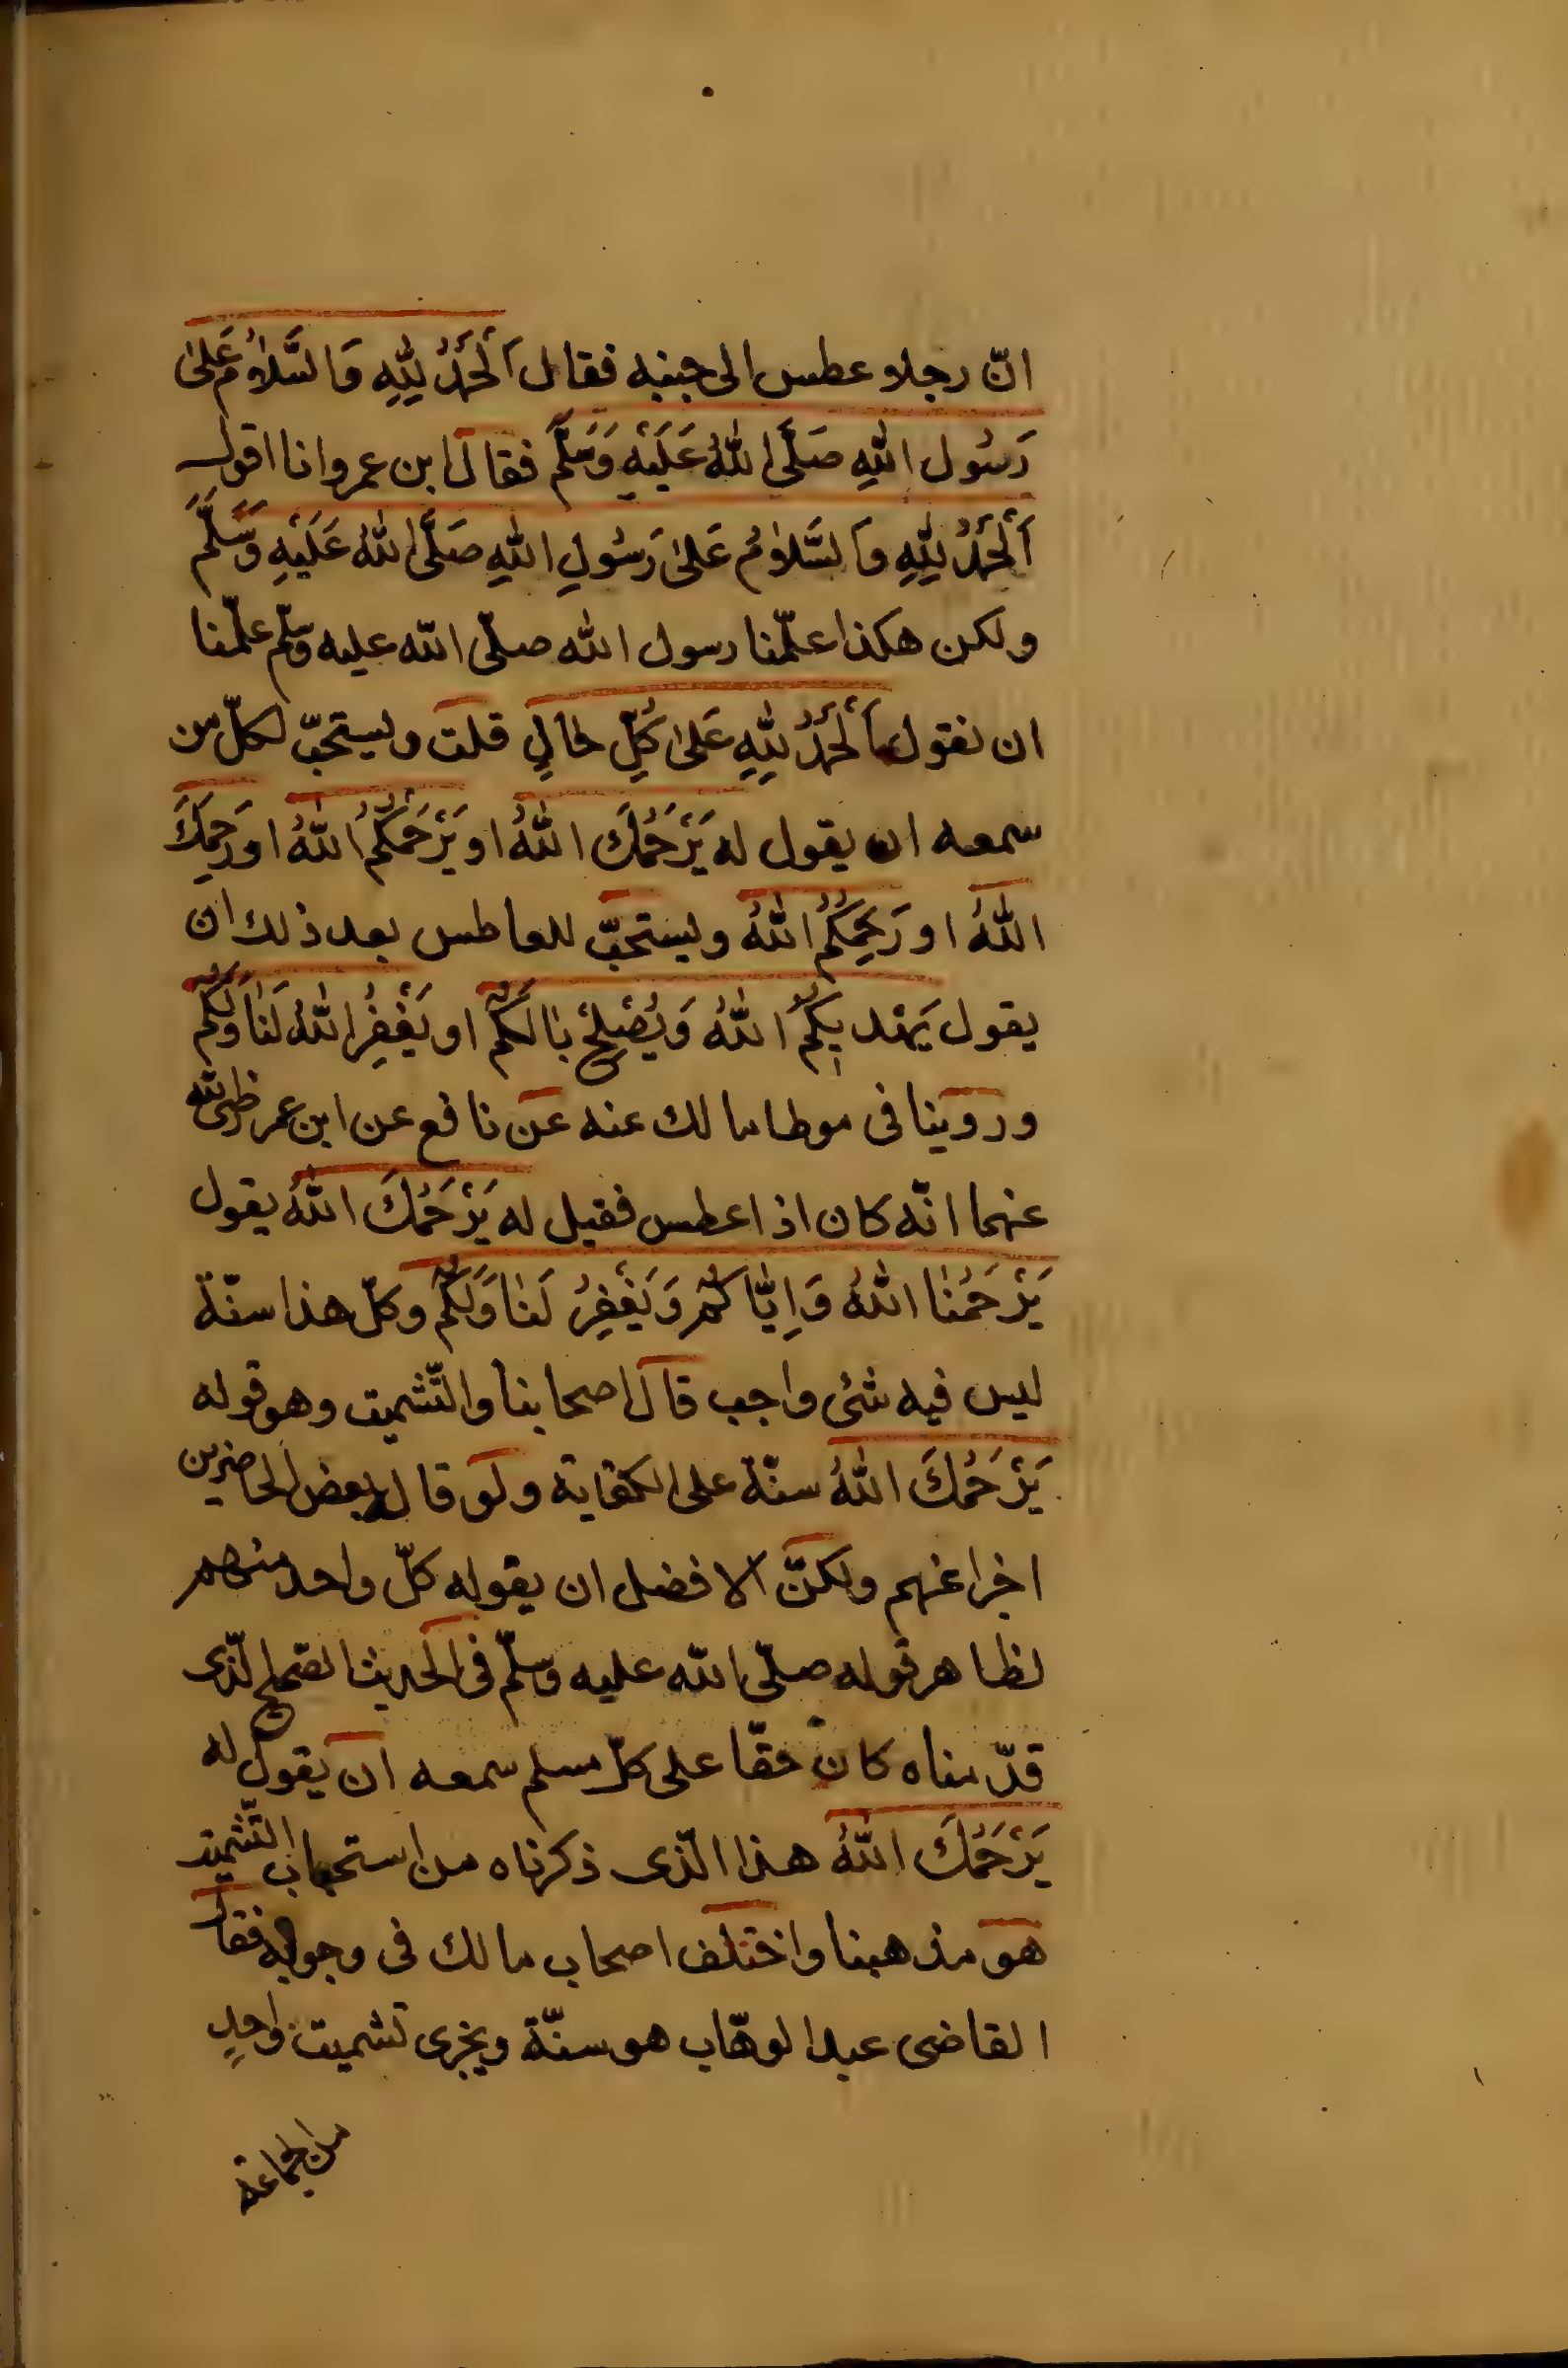 انّ رجلا عطس الى جنبه فقال اَلْحَمْدُ لِلّٰهِ وَالسَّلَامُ عَلَىٰ
رَسُولِ اللّٰهِ صَلَّى اللّٰهُ عَلَيْهِ وَسَلَّمَ فقال ابن عمر وانا اقول
اَلْحَمْدُ لِلّٰهِ وَالسَّلَامُ عَلَىٰ رَسُولِ اللّٰهِ صَلَّى اللّٰهُ عَلَيْهِ وَسَلَّمَ
ولكن هكذا علّمنا رسول الله صلّى الله عليه وسلّم علّمنا
ان نقول اَلْحَمْدُ لِلّٰهِ عَلَىٰ كُلِّ حَالٍ قلت ويستحبّ لكلّ من
سمعه ان يقول له يَرْحَمُكَ اللّٰهُ او يَرْحَمُكُمُ اللّٰهُ او رَحِمَكَ
اللّٰهُ او رَحِمَكُمُ اللّٰهُ ويستحبّ للعاطس بعد ذلك ان
يقول يَهْدِيكُمُ اللّٰهُ وَيُصْلِحُ بَالَكُمْ او يَغْفِرُ اللّٰهُ لَنَا وَلَكُمْ
وروينا فى موطا مالك عنه عن نافع عن ابن عمر رضى الله
عنهما انّه كان اذا عطس فقيل له يَرْحَمُكَ اللّٰهُ يقول
يَرْحَمُنَا اللّٰهُ وَاِيَّاكُمْ وَيَغْفِرُ لَنَا وَلَكُمْ وكلّ هذا سنّة
ليس فيه شئ واجب قال اصحابنا والتّشميت وهو قوله
يَرْحَمُكَ اللّٰهُ سنّة على الكفاية ولو قال بعض الحاضرين
اجزا عنهم ولكنّ الافضل ان يقوله كلّ واحد منهم
لظاهر قوله صلّى الله عليه وسلّم فى الحديث الصّحيح الّذى
قدّمناه كان حقّا على كلّ مسلم سمعه ان يقول له
يَرْحَمُكَ اللّٰهُ هذا الّذى ذكرناه من استحباب التّشميت
هو مذهبنا واختلف اصحاب مالك فى وجوبه فقال
القاضى عبد الوهّاب هو سنّة ويجزى تشميت واحدٍ
من الجماعة